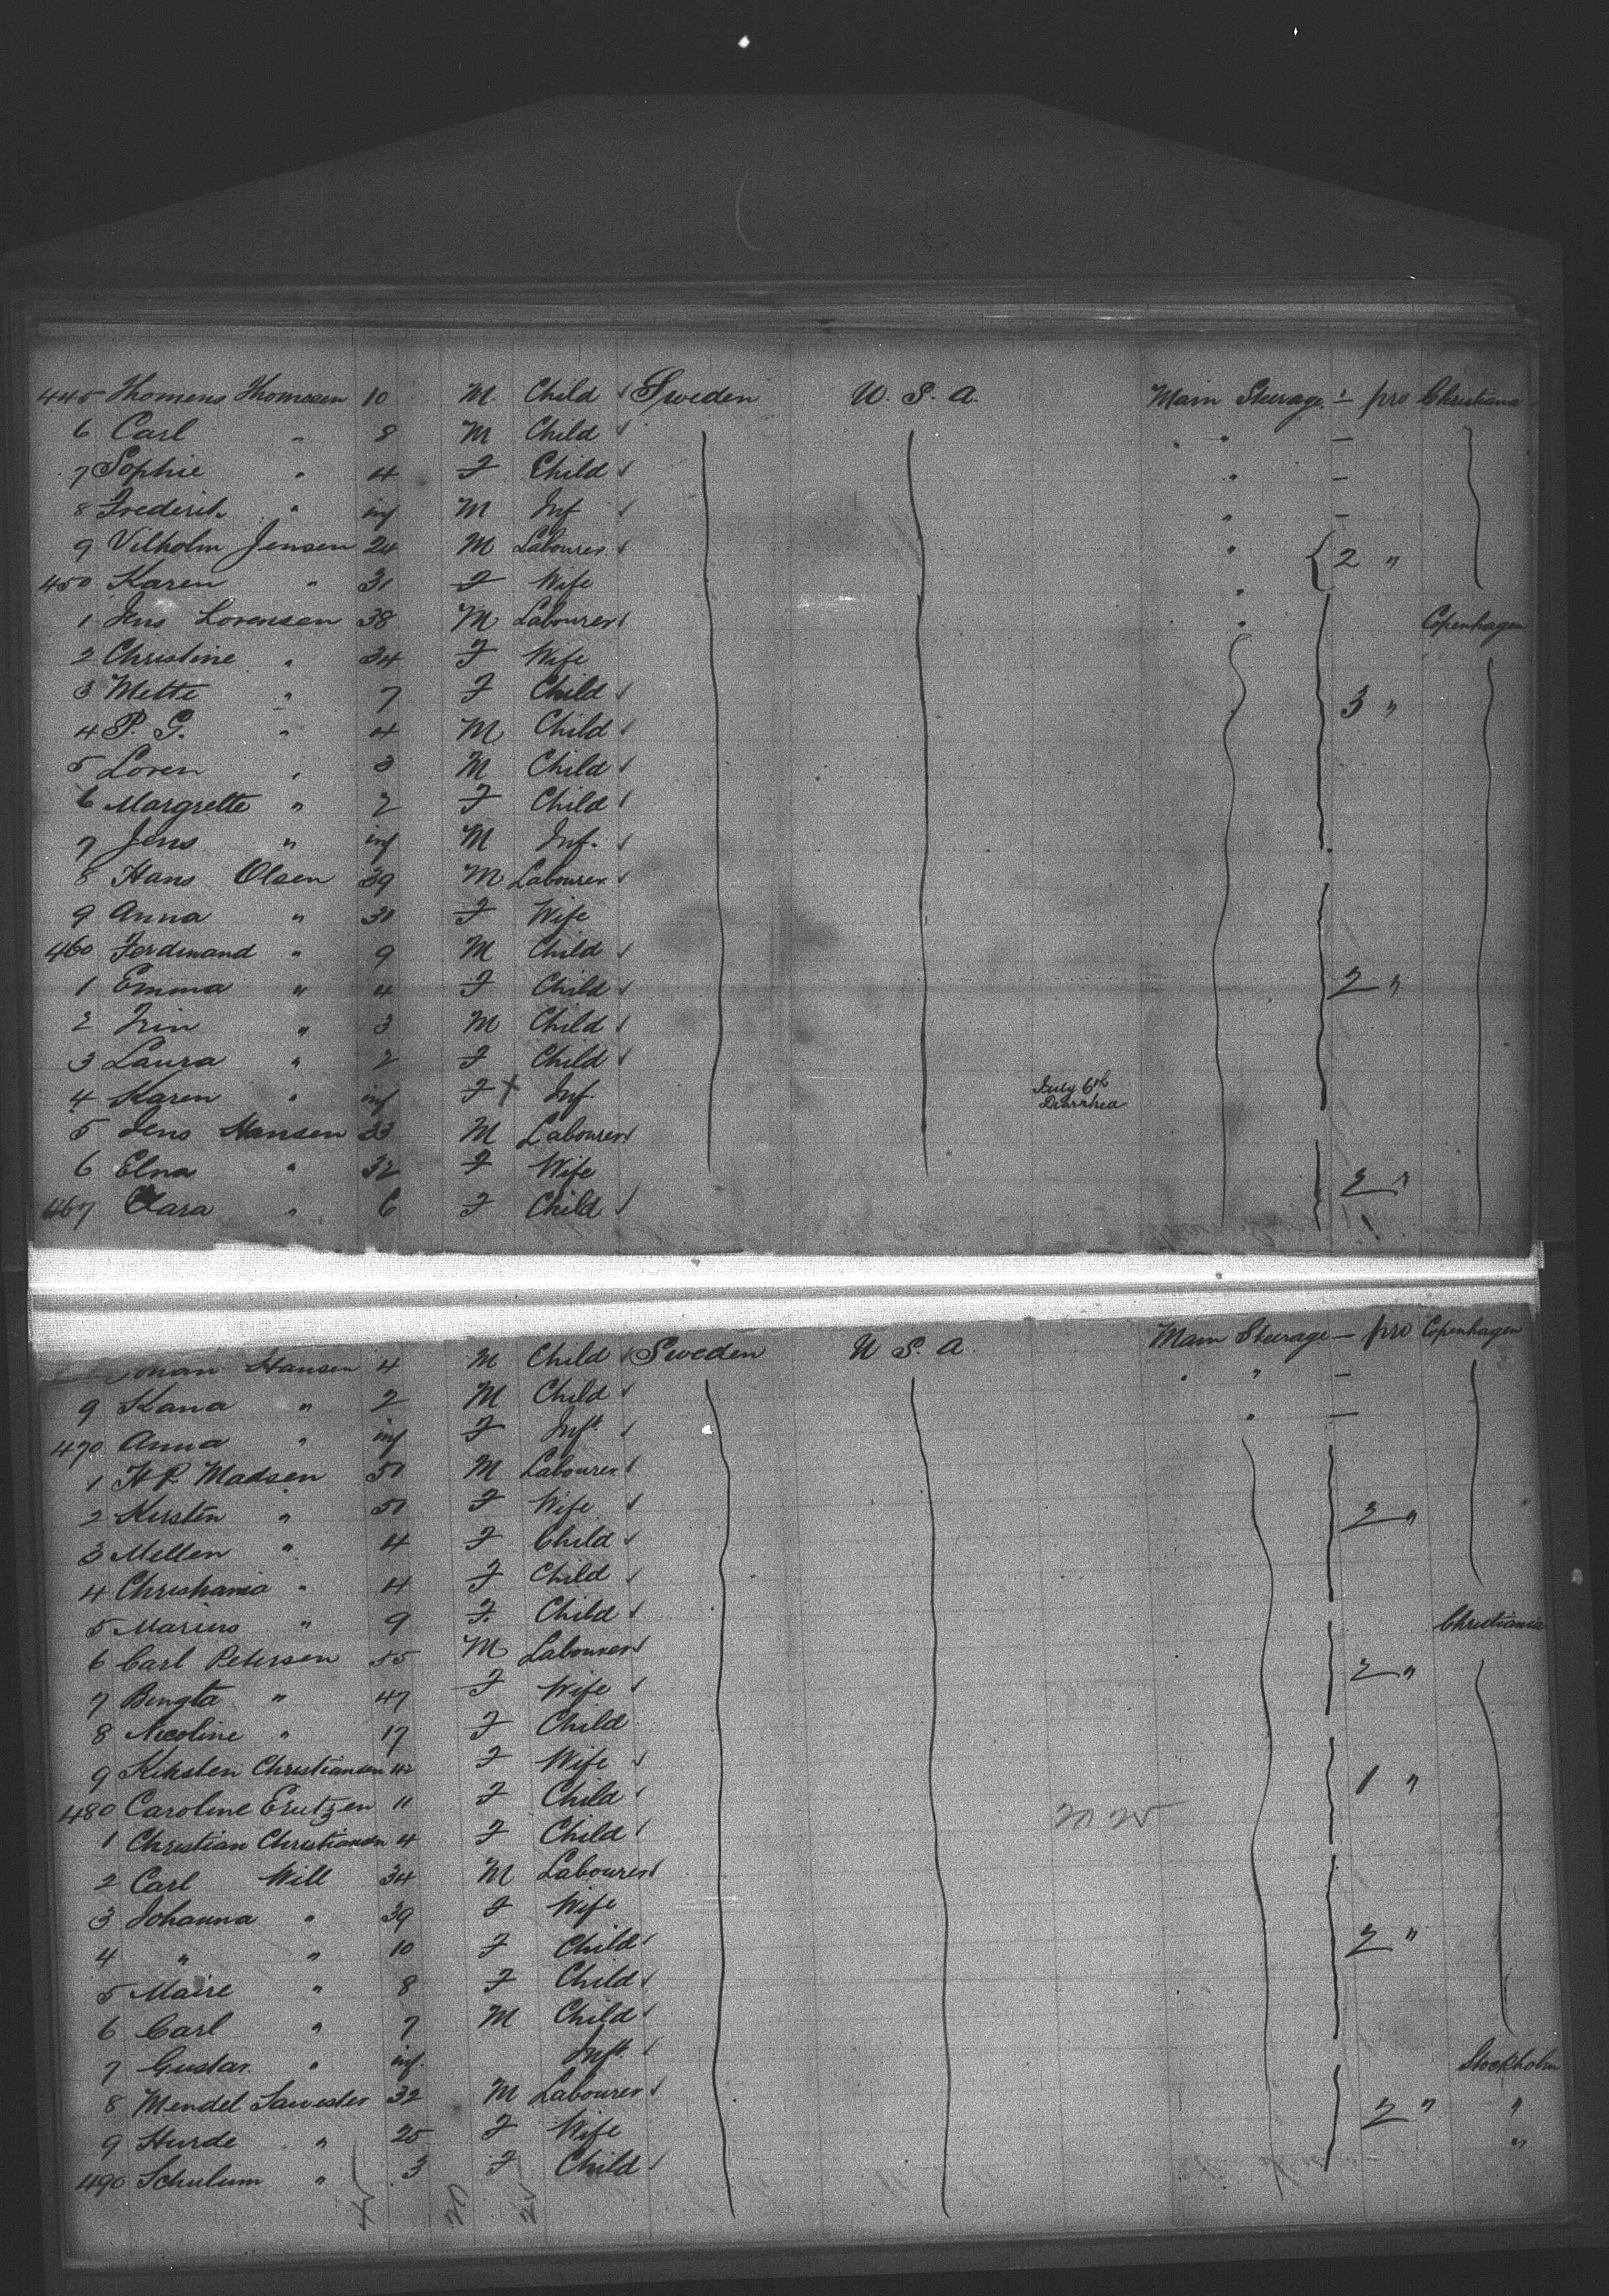 445 Thomens Thomasen 10 M. Child Sweden U. S. A. Main Steerage 1 pro Christiana
6 Carl " 8 M Child " " —
7 Sophie " 4 F Child " —
8 Frederik " inf M Inf " —
9 Vilholm Jensen 24 M Labourer " { 2 "
450 Karen " 31 F Wife "
1 Jens Lorensen 38 M Labourer " Copenhagen
2 Christine " 34 F Wife
3 Mette " 7 F Child 3 "
4 P. G. " 4 M Child
5 Loren " 3 M Child
6 Margrette " 2 F Child
7 Jens " inf M Inf.
8 Hans Olsen 39 M Labourer
9 Anna " 31 F Wife
460 Ferdinand " 9 M Child
1 Emma " 4 F Child 2 "
2 Trin " 3 M Child
3 Laura " 2 F Child
4 Karen " inf F X Inf. July 6th Diarrhea
5 Jens Hansen 33 M Labourer
6 Elna " 32 F Wife 2 "
467 Clara " 6 F Child
Hansen 4 M Child Sweden U S. A. Main Steerage — pro Copenhagen
9 Kana " 2 M Child " " —
470 Anna " inf F Inft. " —
1 H P. Madsen 51 M Labourer
2 Kirsten " 51 F Wife 2 "
3 Mellen " 4 F Child
4 Christiania " 4 F Child
5 Marius " 9 F. Child Christiania
6 Carl Petersen 55 M Labourer
7 Bengta " 47 F Wife 2 "
8 Nicoline " 17 F Child
9 Kirsten Christiansen 42 F Wife 1 "
480 Caroline Erutzen 11 F Child
1 Christian Christiansen 4 F Child
2 Carl Will 34 M Labourer
3 Johanna " 39 F Wife 2 "
4 " " 10 F Child
5 Maire " 8 F Child
6 Carl " 7 M Child
7 Gustav. " inf. Inft. Stockholm
8 Mendel Sawester 32 M Labourer 2 " "
9 Hurde " 25 F Wife "
490 Schulum " 3 F Child